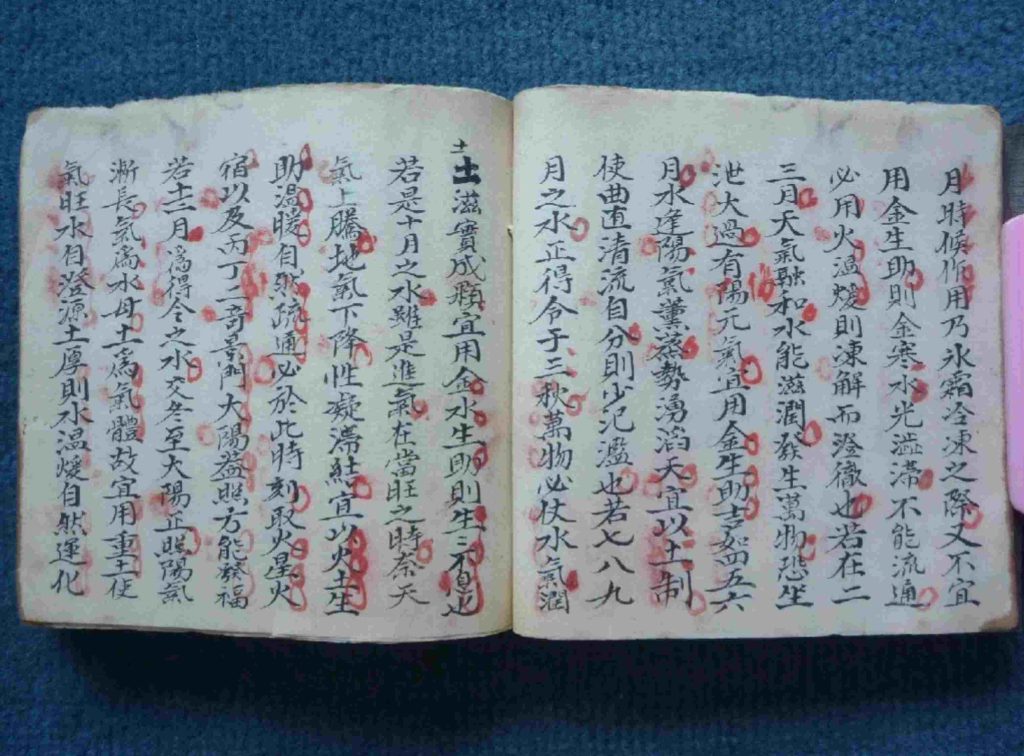 月時候所用乃氷霜冷凍之際又不宜
用金生助則金寒水光澁滯不能流通
必用火温煖則凍解而澄徹也若在二
三月天氣融和水能滋潤發生萬物恐生
泄大過有陽元氣宜用金生助吉如四五六
月水逢陽氣薰蒸勢湧滔天宜以土制
使曲直清流自分則少氾濫也若七八九
月之水正得令于三秋萬物必仗水氣潤
土
土滋實成顆宜用金水生助則生三不息也
若是十月之水雖是進氣在當旺之時奈天
氣上騰地氣下降性凝滯結宜以火土生
助温暖自然疏通必於此時刻取火星火
宿以及丙丁二奇景門大陽益照方能發福
若十二月為得令之水交冬至大陽正照陽氣
漸長氣為水母土為氣體故宜用重土使
氣旺水自澄源土厚則水温煖自然運化